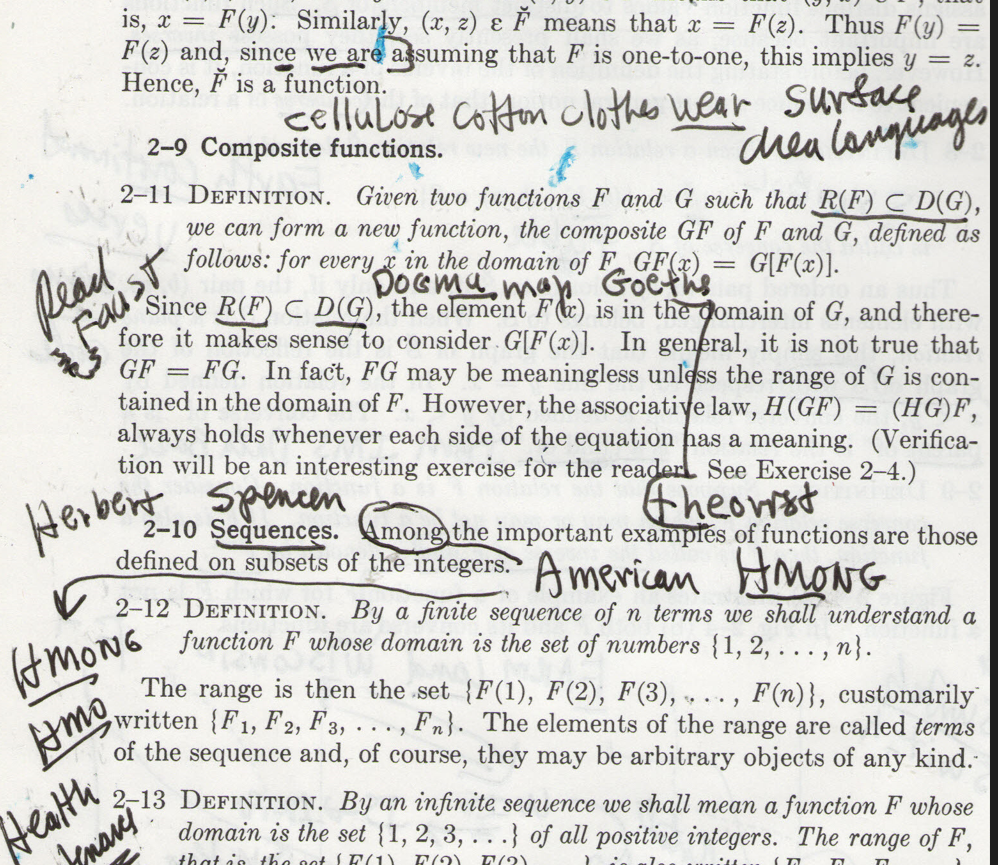 is, x = F(y). Similarly, (x, z) ε F̆ means that x = F(z). Thus F(y) =
F(z) and, since we are assuming that F is one-to-one, this implies y = z.
Hence, F̆ is a function.
cellulose cotton clothes wear surface
area languages
2–9 Composite functions.
2–11 DEFINITION. Given two functions F and G such that R(F) ⊂ D(G),
we can form a new function, the composite GF of F and G, defined as
follows: for every x in the domain of F, GF(x) = G[F(x)].
Dogma map Goethe
Faust
Since R(F) ⊂ D(G), the element F(x) is in the domain of G, and there-
fore it makes sense to consider G[F(x)]. In general, it is not true that
GF = FG. In fact, FG may be meaningless unless the range of G is con-
tained in the domain of F. However, the associative law, H(GF) = (HG)F,
always holds whenever each side of the equation has a meaning. (Verifica-
tion will be an interesting exercise for the reader. See Exercise 2–4.)
Herbert Spencer theorist
2–10 Sequences. Among the important examples of functions are those
defined on subsets of the integers.
American HMONG
2–12 DEFINITION. By a finite sequence of n terms we shall understand a
function F whose domain is the set of numbers {1, 2, . . . , n}.
HMONG
The range is then the set {F(1), F(2), F(3), . . . , F(n)}, customarily
HMO
written {F₁, F₂, F₃, . . . , Fₙ}. The elements of the range are called terms
of the sequence and, of course, they may be arbitrary objects of any kind.
Health
2–13 DEFINITION. By an infinite sequence we shall mean a function F whose
domain is the set {1, 2, 3, . . .} of all positive integers. The range of F,
that is, the set {F(1), F(2), F(3), . . .}, is also written {F₁, F₂, F₃,